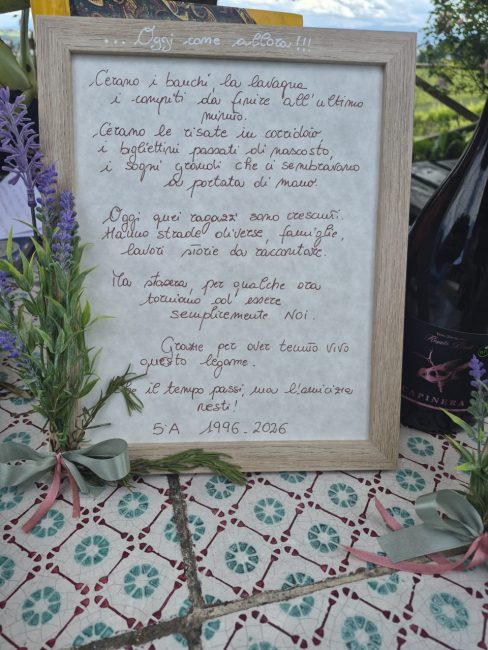 ... Oggi come allora!!!
C'erano i banchi, la lavagna
i compiti da finire all'ultimo
minuto.
C'erano le risate in corridoio,
i bigliettini passati di nascosto,
i sogni grandi che ci sembravano
a portata di mano.
Oggi quei ragazzi sono cresciuti.
Hanno strade diverse, famiglie,
lavori storie da raccontare.
Ma stasera, per qualche ora
torniamo ad essere
semplicemente Noi.
Grazie per aver tenuto vivo
questo legame.
il tempo passi, ma l'amicizia
resti!
5ªA 1996-2026
CAPINERA